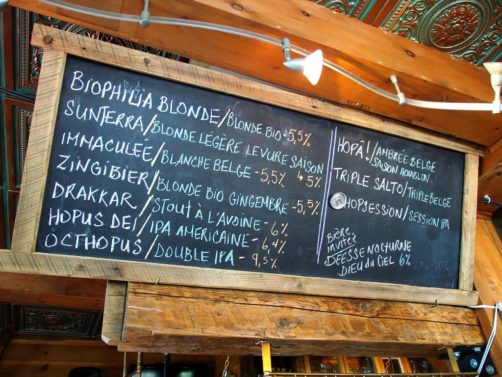 BIOPHILIA BLONDE/BLONDE BIO-5,5%
SUNTERRA/BLONDE LÉGÈRE LEVURE SAISON 4,5%
IMMACULÉE/BLANCHE BELGE -5,5%
ZINGIBIER/BLONDE BIO GINGEMBRE -5,5%
DRAKKAR/STOUT À L'AVOINE - 6%
HOPUS DEI/IPA AMÉRICAINE - 6,4%
OCTHOPUS/DOUBLE IPA - 9,5%
HOPÂ!/AMBRÉE BELGE
SAISON HOUBLON
TRIPLE SALTO/TRIPLE BELGE
HOPSESSION/SESSION IPA
Bière
invitée
DÉESSE NOCTURNE
DIEU du CIEL 6%